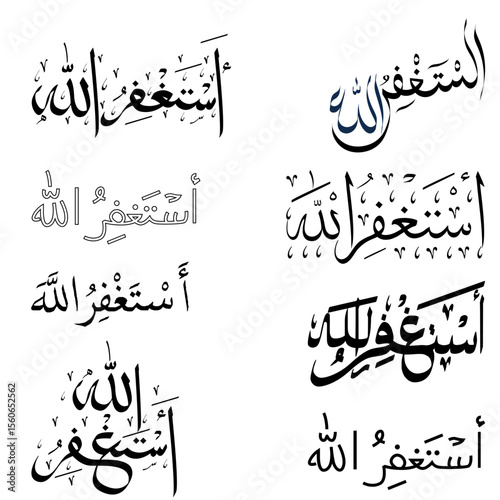 أَسْتَغْفِرُ اللّٰه
استَغْفِرُ اللّٰه
أستَغفِرُ اللّٰه
أَسْتَغْفِرُ اللّٰه
أَسْتَغْفِرُ اللَّهَ
أَسْتَغْفِرُ اللّٰه
أَسْتَغْفِرُ اللّٰه
أستَغفِرُ اللّٰه
Adobe Stock | #1560652562